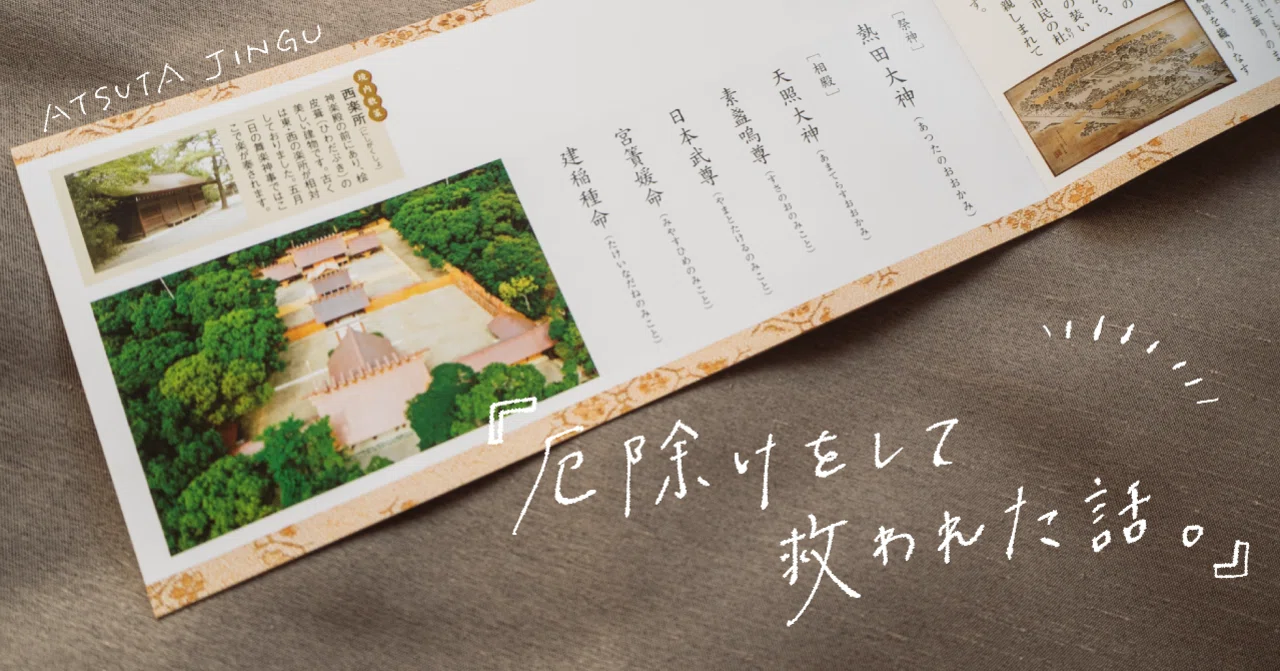 ATSUTA JINGU
市民の杜
親しまれて
す。
［祭神］
熱田大神（あつたのおおかみ）
［相殿］
天照大神（あまてらすおおかみ）
素盞嗚尊（すさのおのみこと）
日本武尊（やまとたけるのみこと）
宮簀媛命（みやすひめのみこと）
建稲種命（たけいなだねのみこと）
西楽所（にしがくしょ）
神楽殿の前にあり、桧
皮葺（ひわだぶき）の
美しい建物です。古く
は東・西の楽所が相対
しておりました。五月
一日の舞楽神事ではこ
こで楽が奏されます。
『厄除けをして
救われた話。』